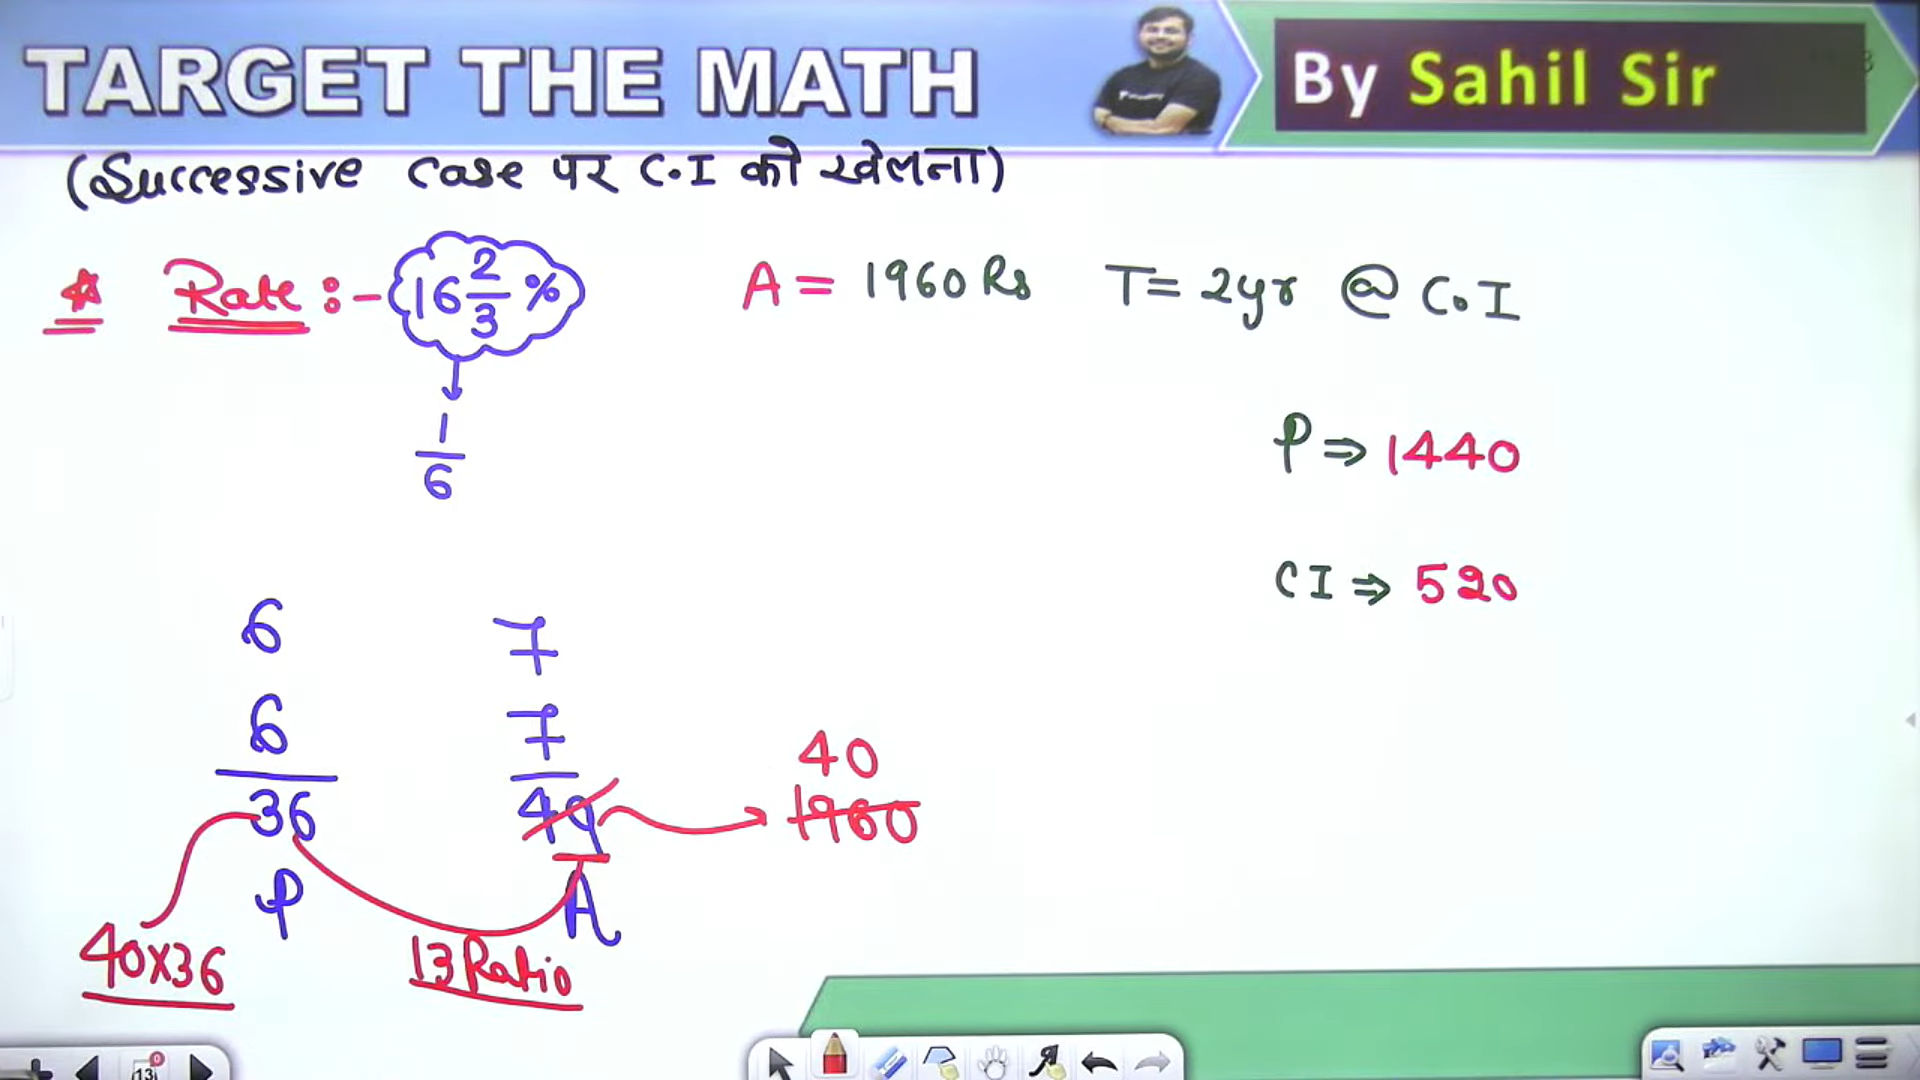 TARGET THE MATH
By Sahil Sir
(Successive case पर C.I को खेलना)
Rate :- 16 2/3 % A = 1960 Rs T = 2yr @ C.I
1/6
P ⇒ 1440
CI ⇒ 520
6 7
6 7
40
36 49 → 1960
P A
40x36 13 Ratio
13
0